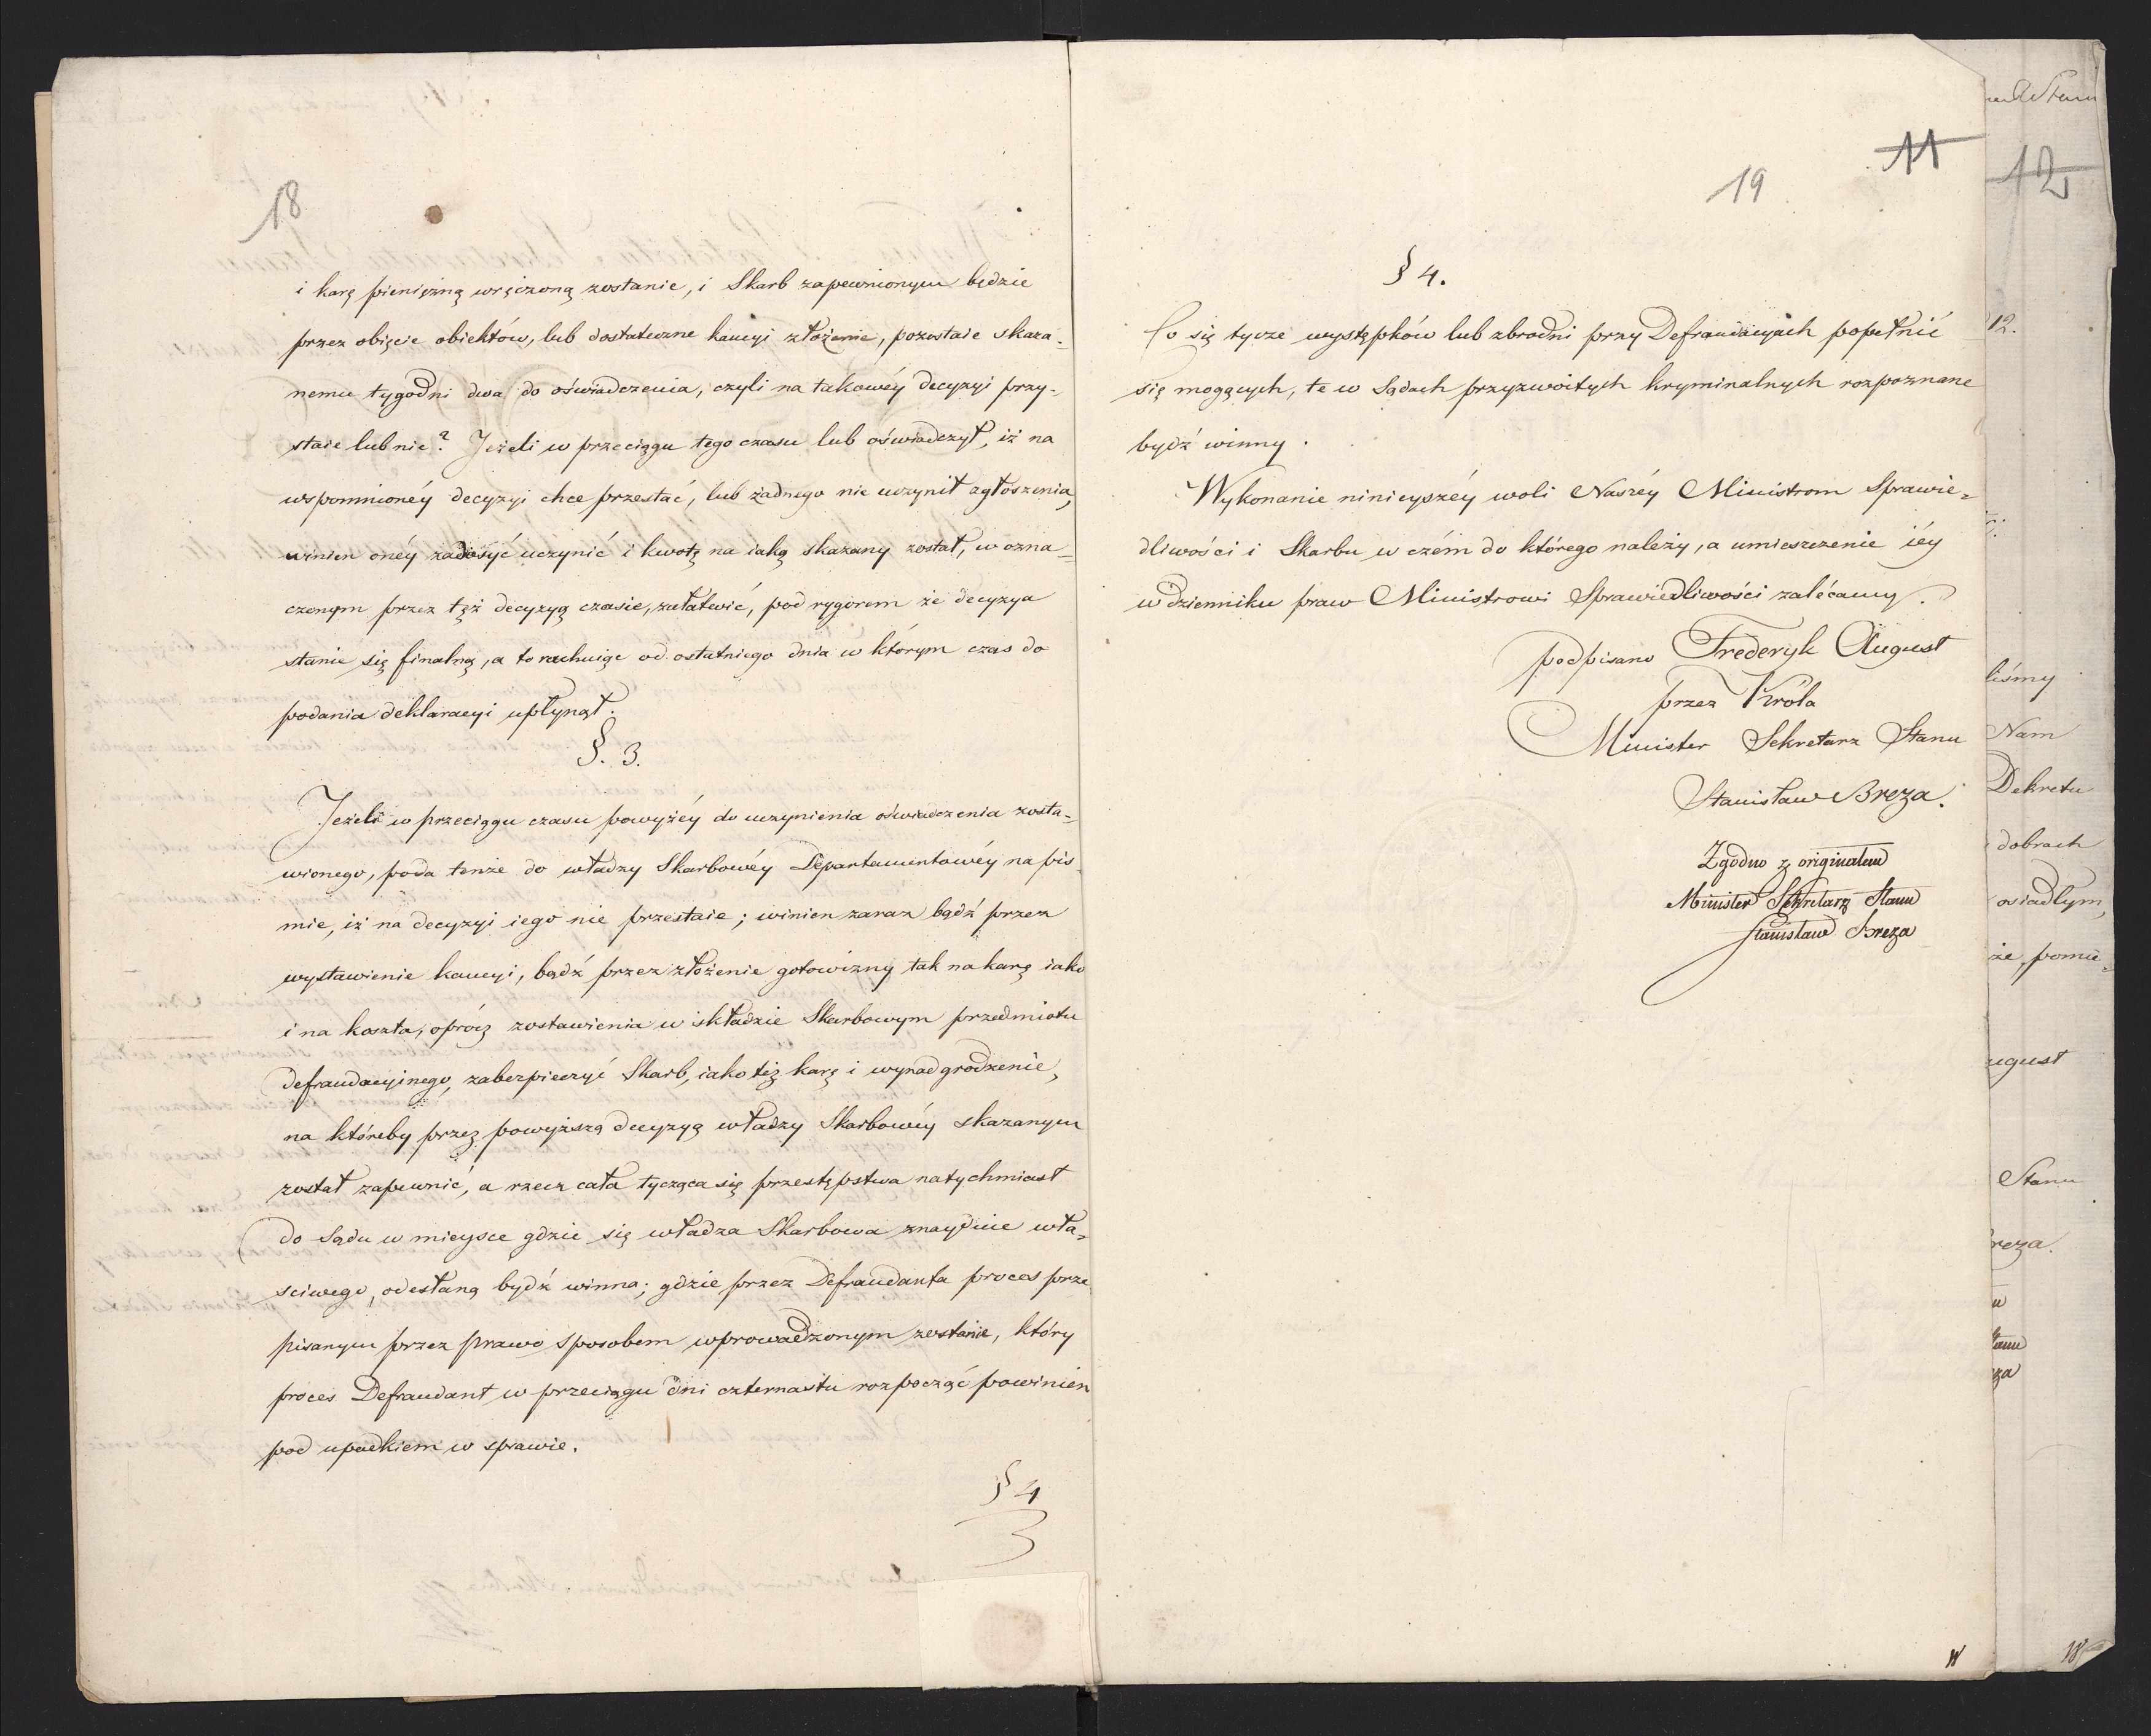 18
i karę pieniężną wręczoną zostanie, i Skarb zapewnionym będzie
przez obięcie obiektów, lub dostateczne kaucyi złożenie, pozostaie skaza-
nemu tygodni dwa do oświadczenia, czyli na takowéy decyzyi przy-
staie lub nie? Jeżeli w przeciągu tego czasu lub oświadczył, iż na
wspomnionéy decyzyi chce przestać, lub żadnego nie uczynił zgłoszenia,
winien onéy zadosyć uczynić i kwotę na iaką skazany został, w ozna-
czonym przez tęż decyzyą czasie, załatwić, pod rygorem że decyzya
stanie się finalną, a to rachuiąc od ostatniego dnia w którym czas do
podania deklaracyi upłynął.
§. 3.
Jeżeli w przeciągu czasu powyżéy do uczynienia oświadczenia zosta-
wionego, poda tenże do władzy Skarbowéy Departamentowéy na pis
mie, iż na decyzyi iego nie przestaie; winien zaraz bądź przez
wystawienie kaucyi, bądź przez złożenie gotowizny tak na karę iako
i na koszta, oprócz zostawienia w składzie Skarbowym przedmiotu
defraudacyinego, zabezpieczyć Skarb, iako też karę i wynadgrodzenie,
na któreby przez powyższą decyzyą władzy Skarbowéy skazanym
został zapewnić, a rzecz cała tycząca się przestępstwa natychmiast
do Sądu w mieysce gdzie się władza Skarbowa znayduie wła-
sciwego, odesłaną bydź winna; gdzie przez Defraudanta proces prze
pisanym przez prawo sposobem wprowadzonym zostanie, który
proces Defraudant w przeciągu dni czternastu rozpocząć powinien
pod upadkiem w sprawie.
§ 4
11
19
§ 4.
Co się tycze występków lub zbrodni przy Defraudacyach popełnić
się mogących, te w Sądach przyzwoitych kryminalnych rozpoznane
bydź winny.
Wykonanie ninieyszéy woli Naszéy Ministrom Sprawie-
dliwości i Skarbu w czém do którego należy, a umieszczenie iéy
w dzienniku praw Ministrowi Sprawiedliwości zalécamy.
podpisano Frederyk August
przez Króla
Minister Sekretarz Stanu
Stanisław Breza.
Zgodno z originałem
Minister Sekretarz Stanu
Stanisław Breza
12
12.
liśmy
Nam
Dekretu
dobrach
osiadłym,
że, pomie-
ugust
Stanu
reza.
u
tanu
za